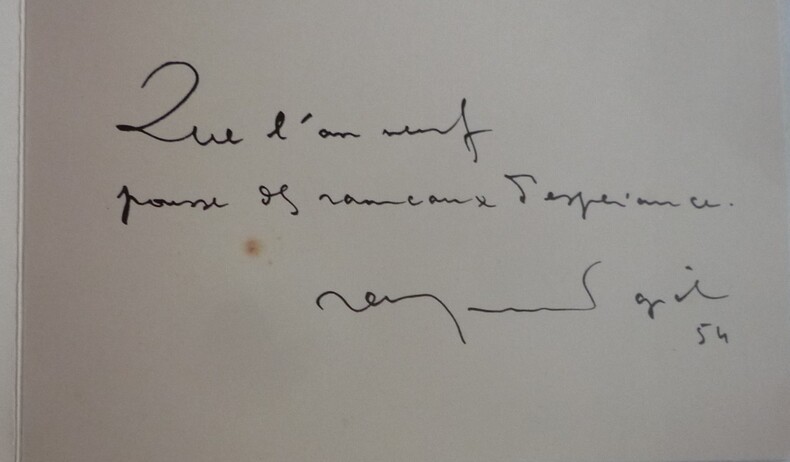 Que l'an neuf
pousse des rameaux d'espérance.
raymond gid
54